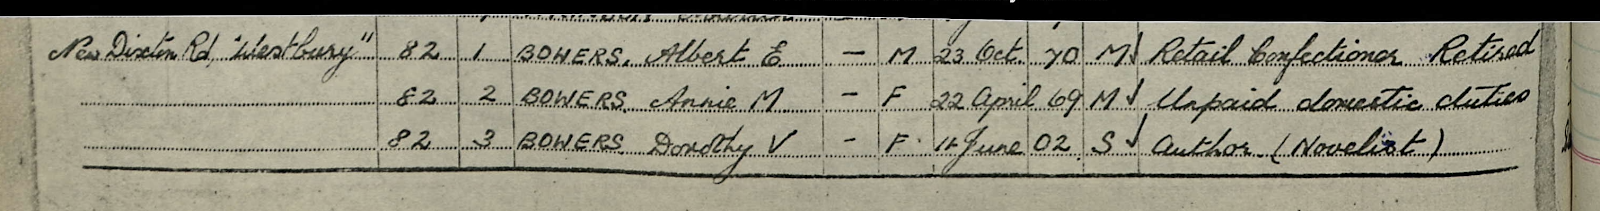 New Dixton Rd, "Westbury" 82 1 BOWERS. Albert E — M 23 Oct. 70 M Retail Confectioner Retired
82 2 BOWERS Annie M — F 22 April 69 M Unpaid domestic duties
82 3 BOWERS Dorothy V — F 11 June 02 S Author (Novelist)